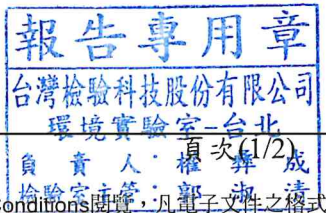 報告專用章
台灣檢驗科技股份有限公司
環境實驗室-台北
頁次(1/2)
負責人：權彝成
檢驗室主管：郭淑清
Conditions閱覽，凡電子文件之格式